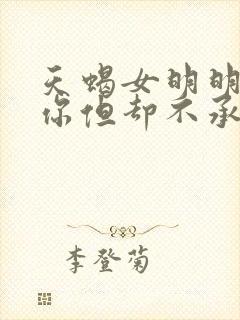 天蝎女明明
你但却不承
李登菊